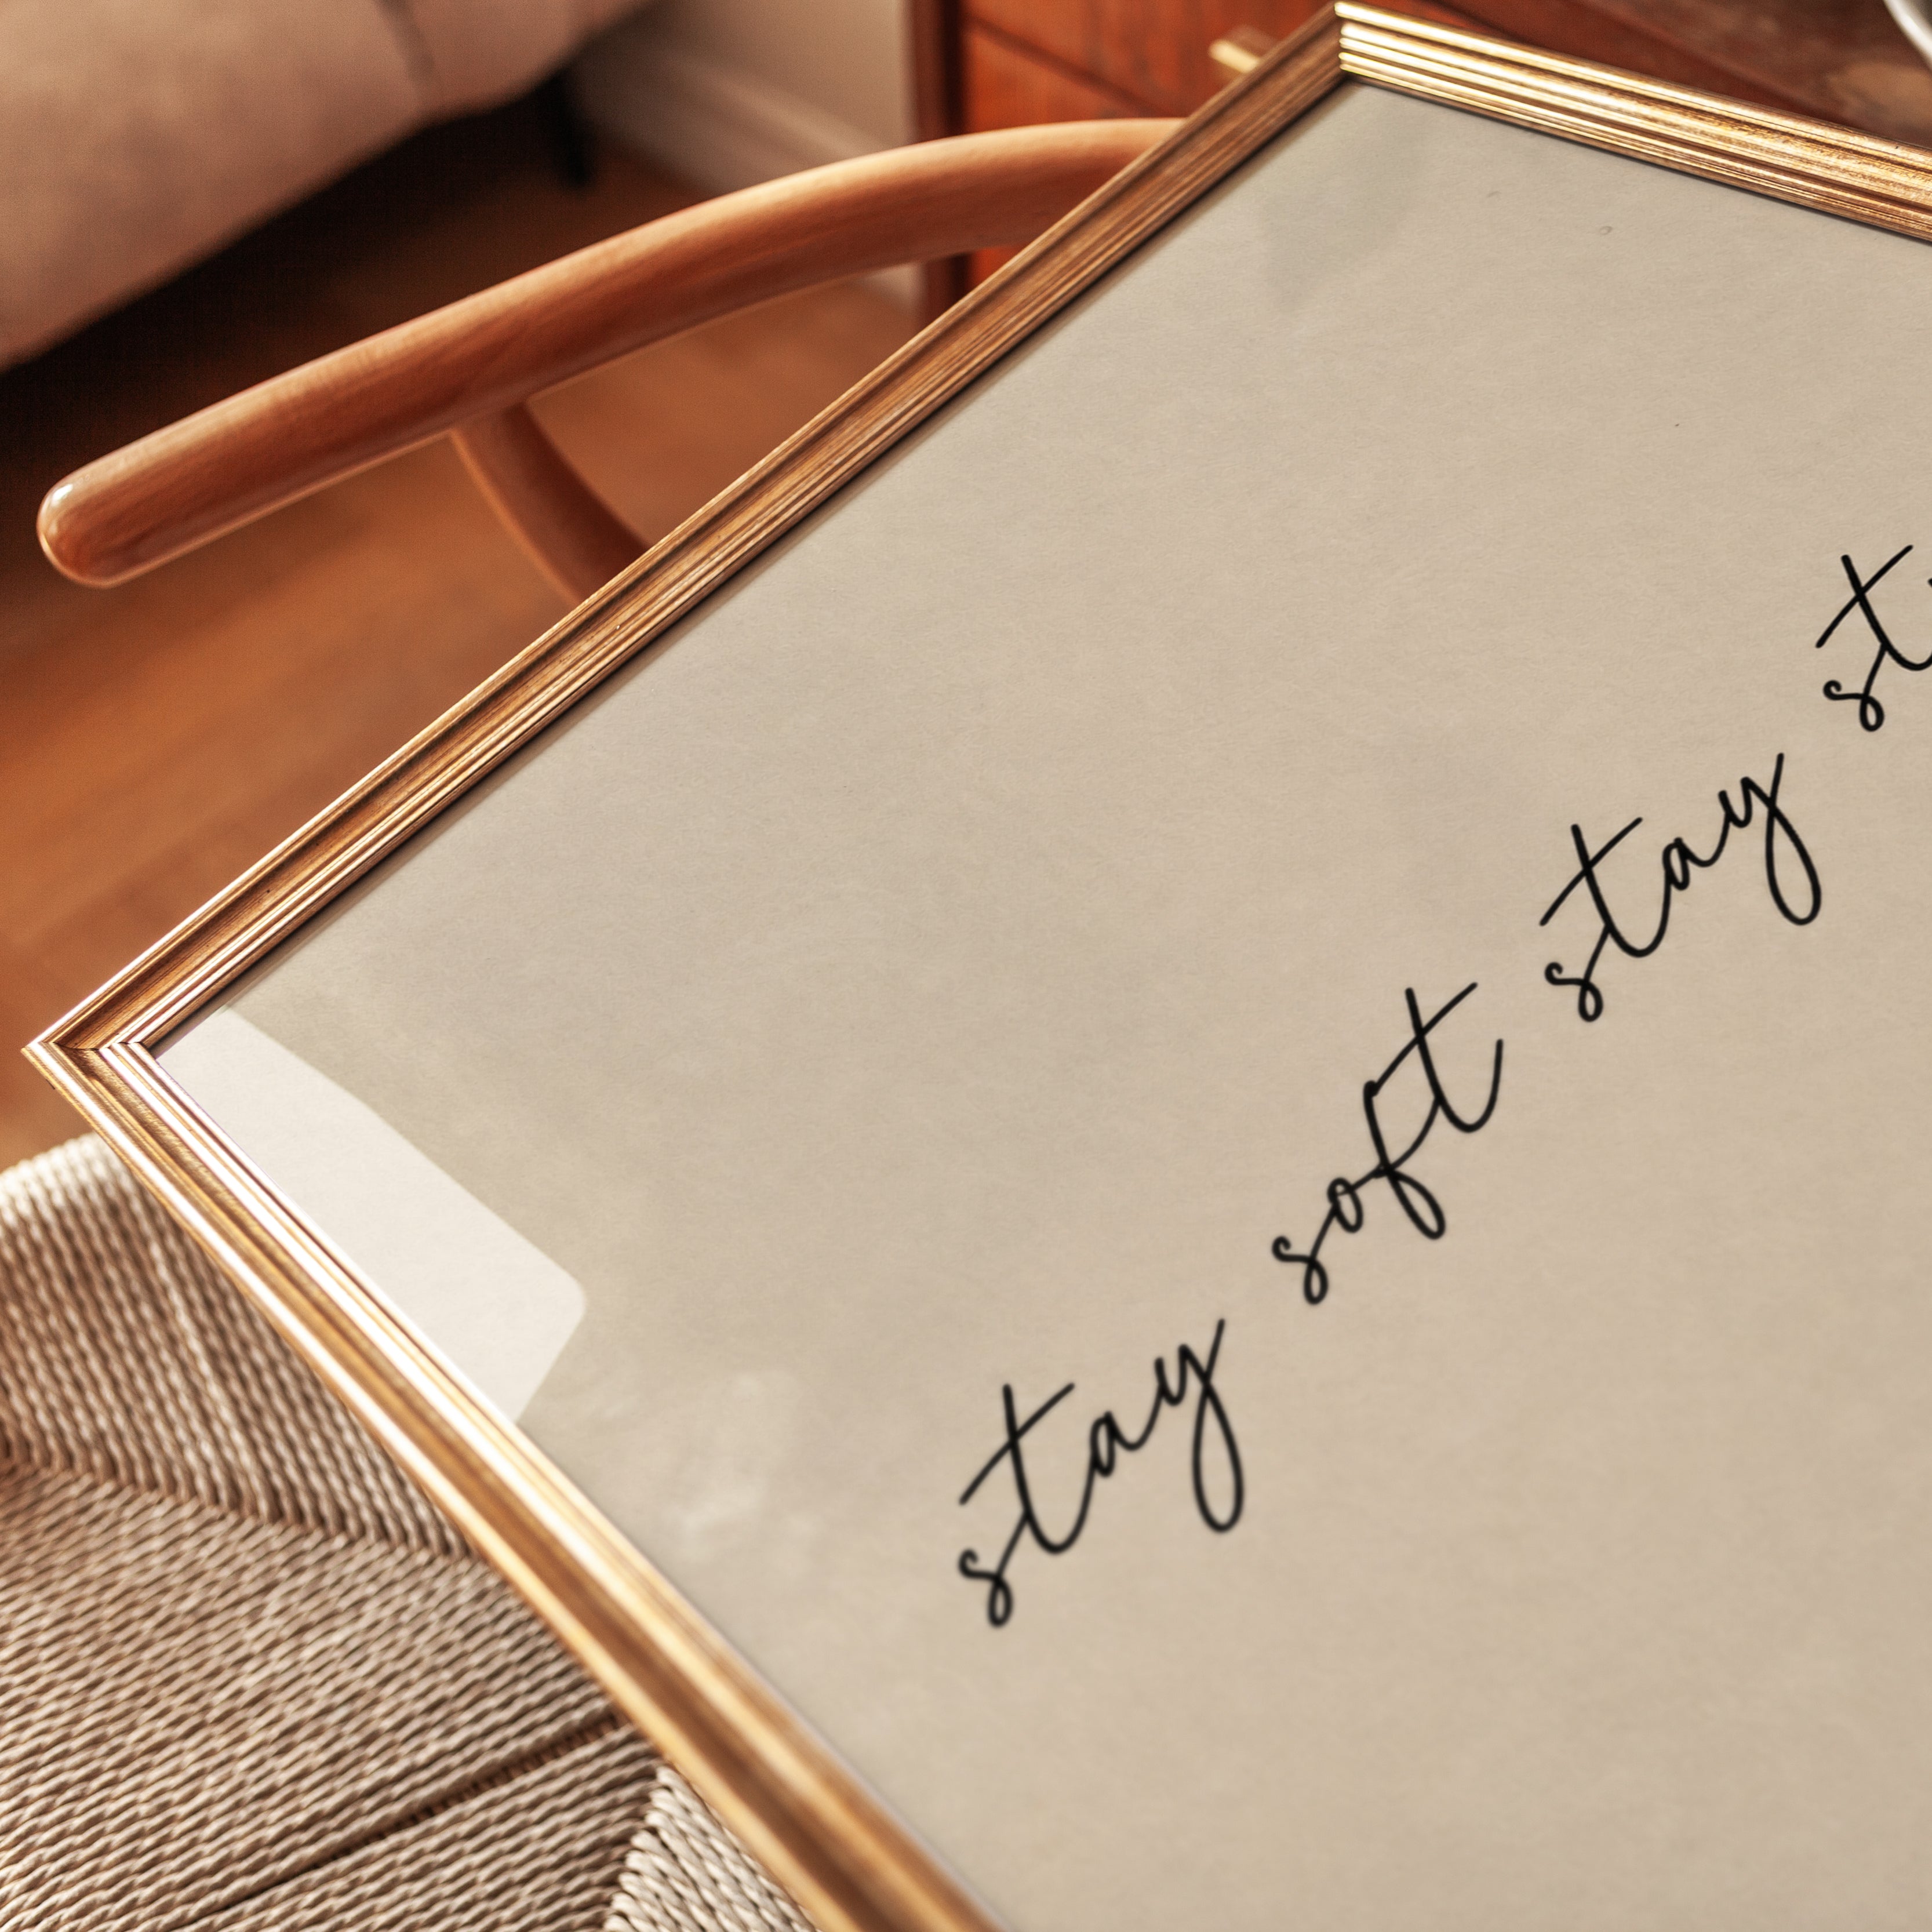 stay soft stay